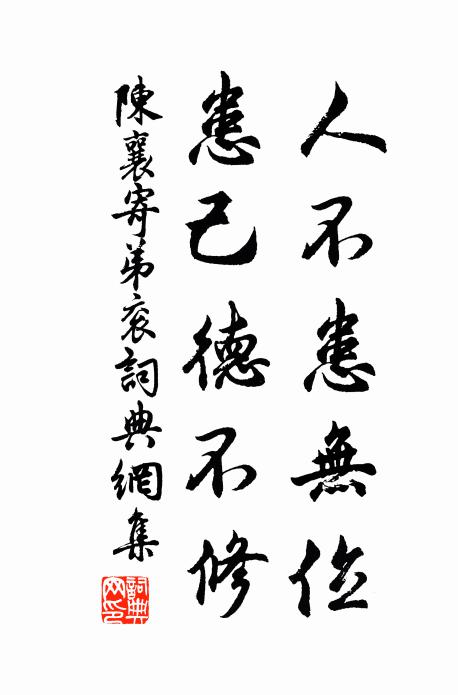 人不患無位
患己德不修
陳襄寄弟袞詞典網集
詞典网印